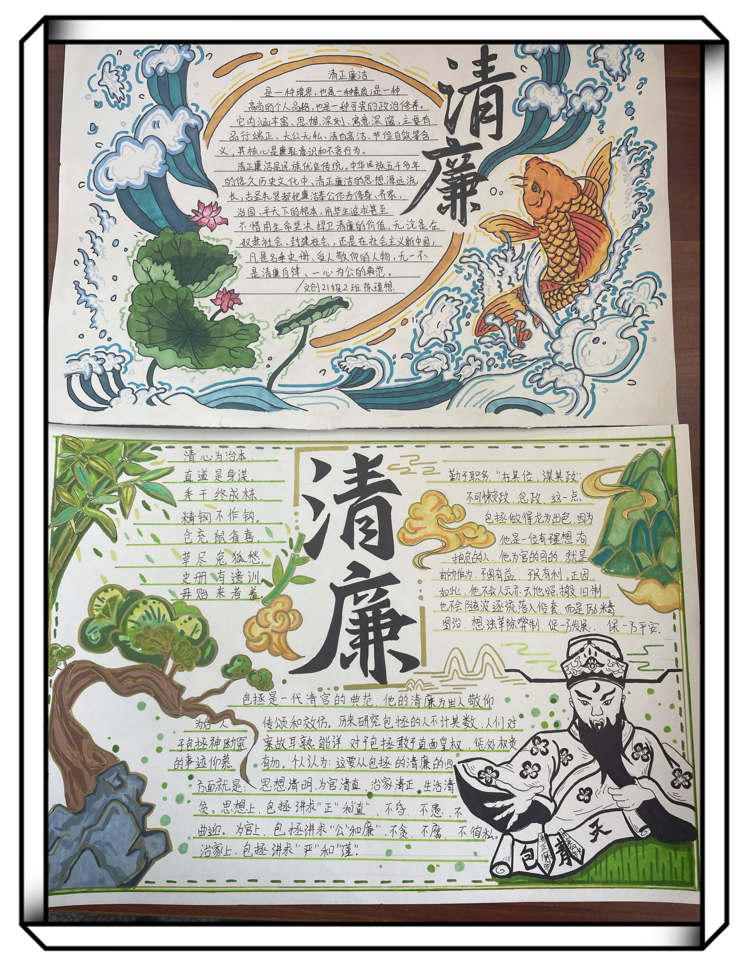 清正廉洁
是一种境界,也是一种素质,是一种
高尚的个人品格,也是一种可贵的政治修养。
它内涵丰富,思想深刻,寓意深远,主要有
品行端正、大公无私、清白高洁、节俭自敛等含
义,其核心是廉耻意识和不贪行为。
清正廉洁是民族优良传统。中华民族五千多年
的悠久历史文化中,清正廉洁的思想源远流
长,古圣先贤都把廉洁奉公作为修身、齐家、
治国、平天下的根本,用毕生追求甚至
不惜用生命鲜血捍卫清廉的价值,无论是在
奴隶社会、封建社会,还是在社会主义新中国,
凡是名垂史册,受人敬仰的人物,无一不
是清廉自律、一心为公的典范。
文创21级2班
清
廉
清心为治本
直道是身谋
秀干终成栋
精钢不作钩。
仓充鼠雀喜,
草尽兔狐愁,
史册有遗训,
毋贻来者羞
清
廉
勤于职务,"在其位,谋其政"
不可懈政、怠政,这一点
包拯做得尤为出色,因为
他是一位有理想有
抱负的人,他为官的目的就是
有所作为,于国有益,于民有利,正因
如此,他不会人云亦云地照搬旧制
也不会随波逐流落入俗套,而是励精
图治,想法革除弊制,促一方发展,保一方平安.
包拯是一代清官的典范,他的清廉为世人敬仰
传颂和效仿。历来研究包拯的人不计其数,人们对
案故耳熟能详,对于包拯敢于直面皇权、
的事迹仰慕有加,个人认为:这要从包拯的清廉的四
方面就是:思想清明、为官清直、治家清正、生活清
贫。思想上,包拯讲求"正"和"直",不昏、不愚、不
曲迎。为官上,包拯讲求"公"和"廉",不贪、不腐、不徇私。
治家上,包拯讲求"严"和"谨"。
包青天